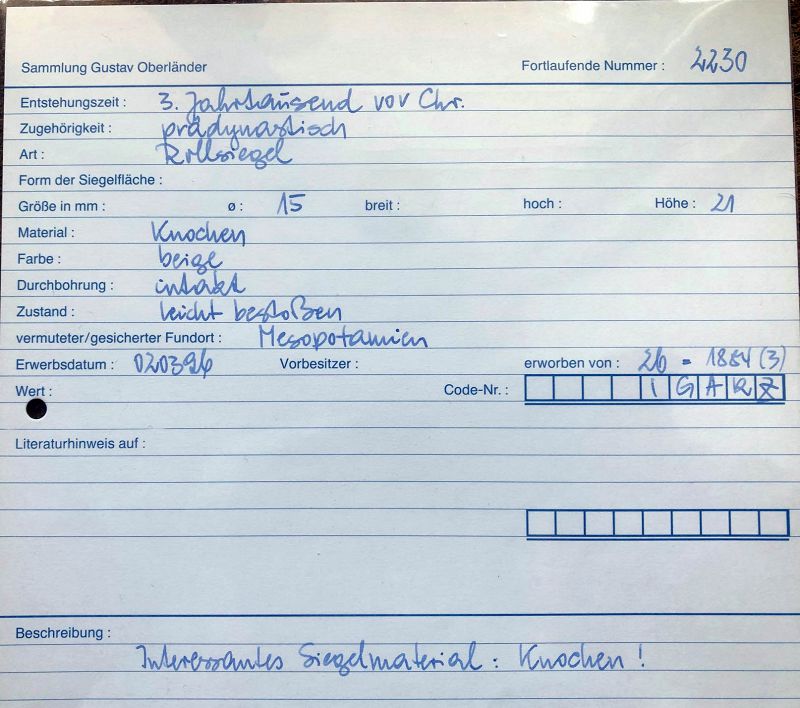 Sammlung Gustav Oberländer Fortlaufende Nummer : 2230
Entstehungszeit : 3. Jahrtausend vor Chr.
Zugehörigkeit : prädynastisch
Art : Rollsiegel
Form der Siegelfläche :
Größe in mm : ø : 15 breit : hoch : Höhe : 21
Material : Knochen
Farbe : beige
Durchbohrung : intakt
Zustand : leicht bestoßen
vermuteter/gesicherter Fundort : Mesopotamien
Erwerbsdatum : 020396 Vorbesitzer : erworben von : 26 = 1884 (3)
Wert : Code-Nr. : I G A R Z
Literaturhinweis auf :
Beschreibung :
Interessantes Siegelmaterial : Knochen !